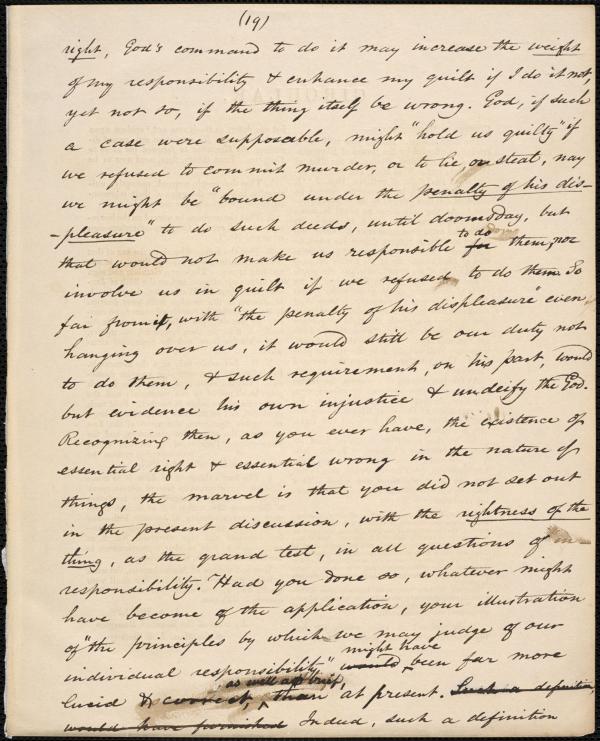 (19)
right, God's command to do it may increase the weight
of my responsibility & enhance my guilt if I do it not,
yet not so, if the thing itself be wrong. God, if such
a case were supposable, might "hold us guilty" if
we refused to commit murder, or to lie or steal, nay
we might be "bound under the penalty of his dis-
-pleasure" to do such deeds, until doomsday, but
that would not make us responsible for to do them, nor
involve us in guilt if we refused to do them. So
far from it, with "the penalty of his displeasure" even
hanging over us, it would still be our duty not
to do them, & such requirement, on his part, would
but evidence his own injustice & undeify the God.
Recognizing then, as you ever have, the existence of
essential right & essential wrong in the nature of
things, the marvel is that you did not set out
in the present discussion, with the rightness of the
thing, as the grand test, in all questions of
responsibility. Had you done so, whatever might
have become of the application, your illustration
of "the principles by which we may judge of our
might have
individual responsibility" would been far more
as well as brief
lucid & correct, than at present. Such a definition
would have furnished Indeed, such a definition